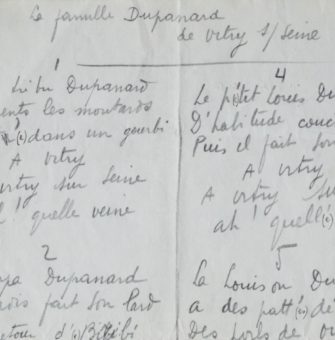 La famille Dupanard
de vitry s/ seine
1
tribu Dupanard
ents les moutards
(s) dans un gourbi
A vitry
vitry sur seine
! quelle veine
2
pa Dupanard
fait son lard
etour d'
4
Le p'tit Louis Du
D'habitude couc
Puis il fait son
A vitry
A vitry sur
ah! quelle(s)
5
La Louison Du
a des patt'(es) dé
Des poils de